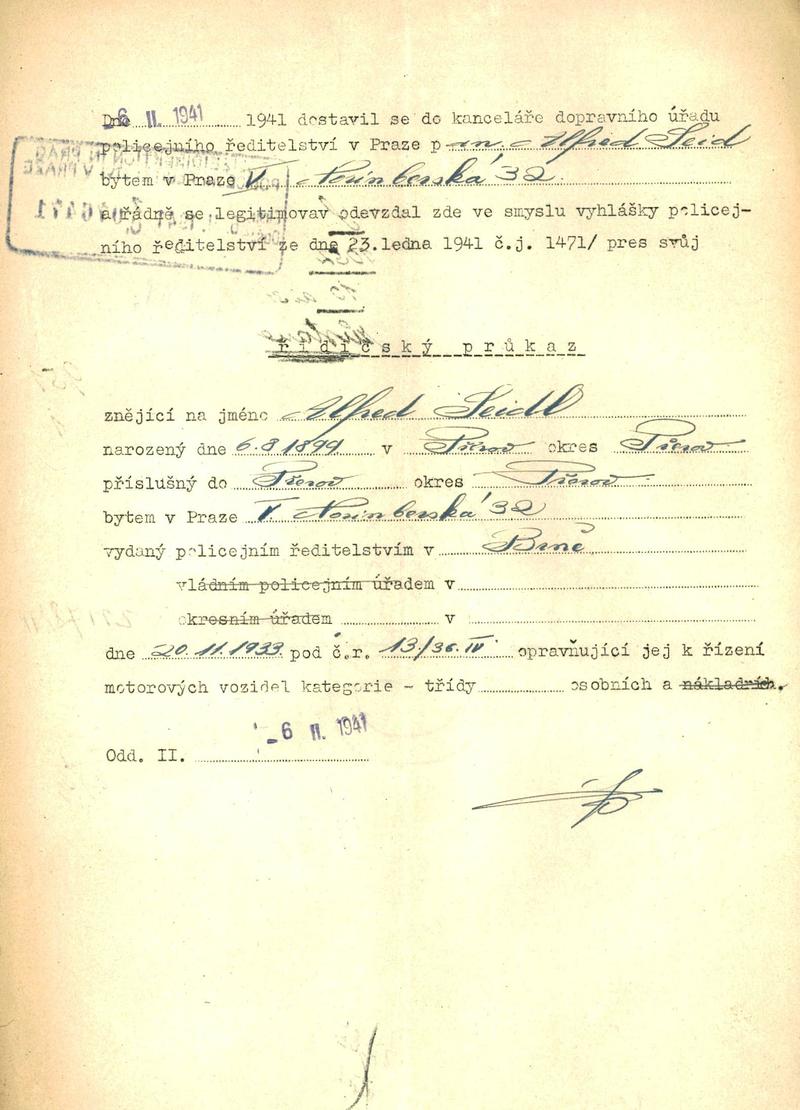 Dne 6 II. 1941 1941 dostavil se do kanceláře dopravního úřadu
policejního ředitelství v Praze p an. Alfred Seid
bytem v Praze V. Norimberská 32.
a řádně se legitimovav odevzdal zde ve smyslu vyhlášky policej-
ního ředitelství ze dne 23.ledna 1941 č.j. 1471/ pres svůj
řidičský průkaz
znějící na jméno Alfred Seidl
narozený dne 6.8 1899 v Přerov okres Přerov
příslušný do Přerov okres Přerov
bytem v Praze V Norimberská 32
vydaný policejním ředitelstvím v Brně
vládním policejním úřadem v
okresním úřadem v
dne 20.11.1933 pod č.r. 13/36.IV opravňující jej k řízení
motorových vozidel kategorie - třídy osobních a nákladních.
- 6 II. 1941
Odd. II.